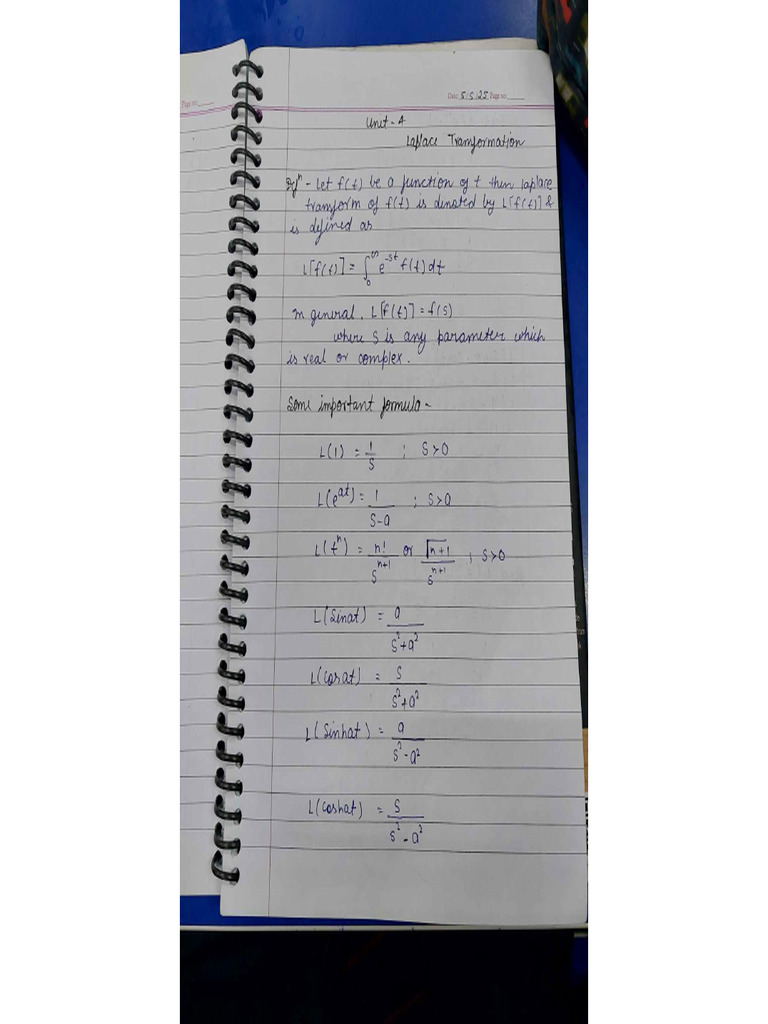 Page no:
Date: 5/5/25 Page no:
Unit - 4
Laplace Tranformation
Defⁿ - Let f(t) be a function of t then laplace
transform of f(t) is denoted by L[f(t)] &
is defined as
L[f(t)] = ∫₀^∞ e^-st f(t) dt
In general, L[f(t)] = f(s)
where S is any parameter which
is real or complex.
Some important formula -
L(1) = 1/S ; S>0
L(e^at) = 1/(S-a) ; S>a
L(t^n) = n!/S^(n+1) or √(n+1)/S^(n+1) ; S>0
L(Sinat) = a/(S²+a²)
L(cosat) = S/(S²+a²)
L(Sinhat) = a/(S²-a²)
L(coshat) = S/(S²-a²)